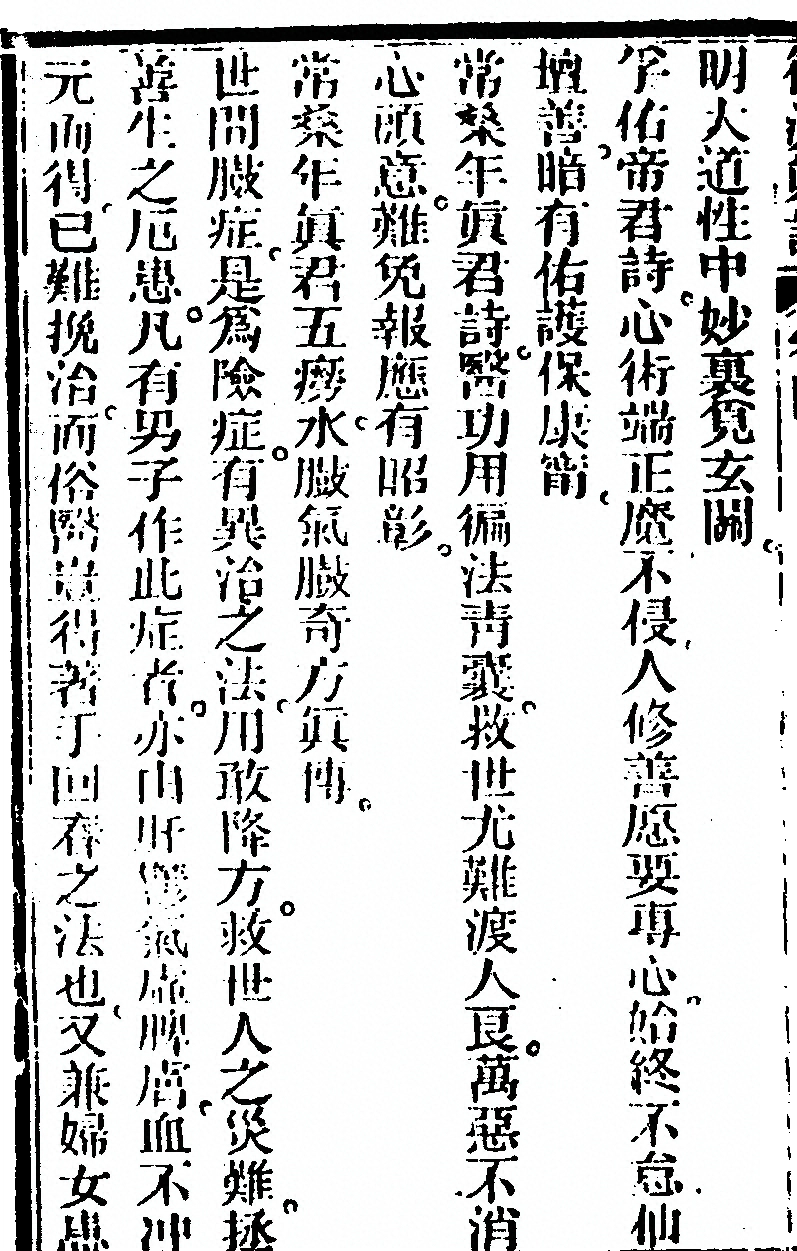 明大道性中妙裏覓玄關。
孚佑帝君詩。心術端正魔不侵。人修善愿要專心。始終不怠仙
壇善。暗有佑護保康甯。
常桑年眞君詩。醫功用徧法靑囊。救世尤難渡人良。萬惡不消
心頭意。難免報應有昭彰。
常桑年眞君五癆水臌氣臌奇方眞傳。
世間臌症。是爲險症。有異治之法。用敢降方。救世人之災難。拯
善生之厄患。凡有男子作此症者。亦由肝鬱氣虛脾腐。血不冲
元而得。已難挽治。而俗醫豈得著手回春之法也。又兼婦女患